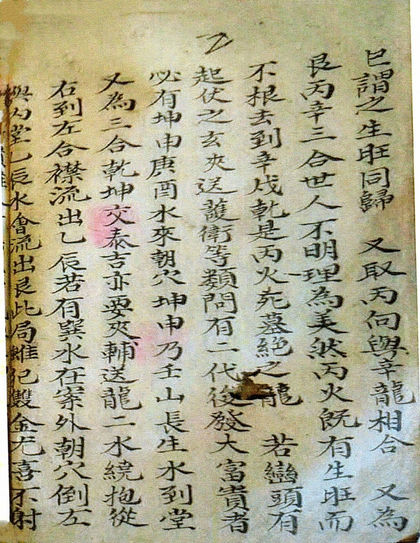 巳謂之生旺同歸 又取丙向與辛龍相合 又為
艮丙辛三合世人不明理為美然丙火既有生旺而
不根去到辛戌乾是丙火死墓絶之龍 若巒頭有
起伏之玄夾送護衛等類問有二代後發大富貴者
必有坤申庚酉水來朝穴坤申乃壬山長生水到堂
又為三合乾坤交泰吉亦要夾輔送龍二水繞抱從
右到左合襟流出乙辰若有巽水在案外朝穴倒左
與內堂乙辰水會流出艮此局雖犯殺金尤喜不射